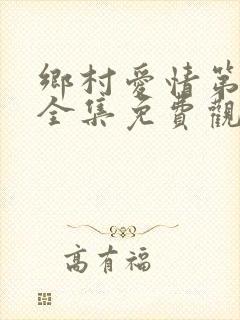 鄉村愛情第
全集免費觀
高有福